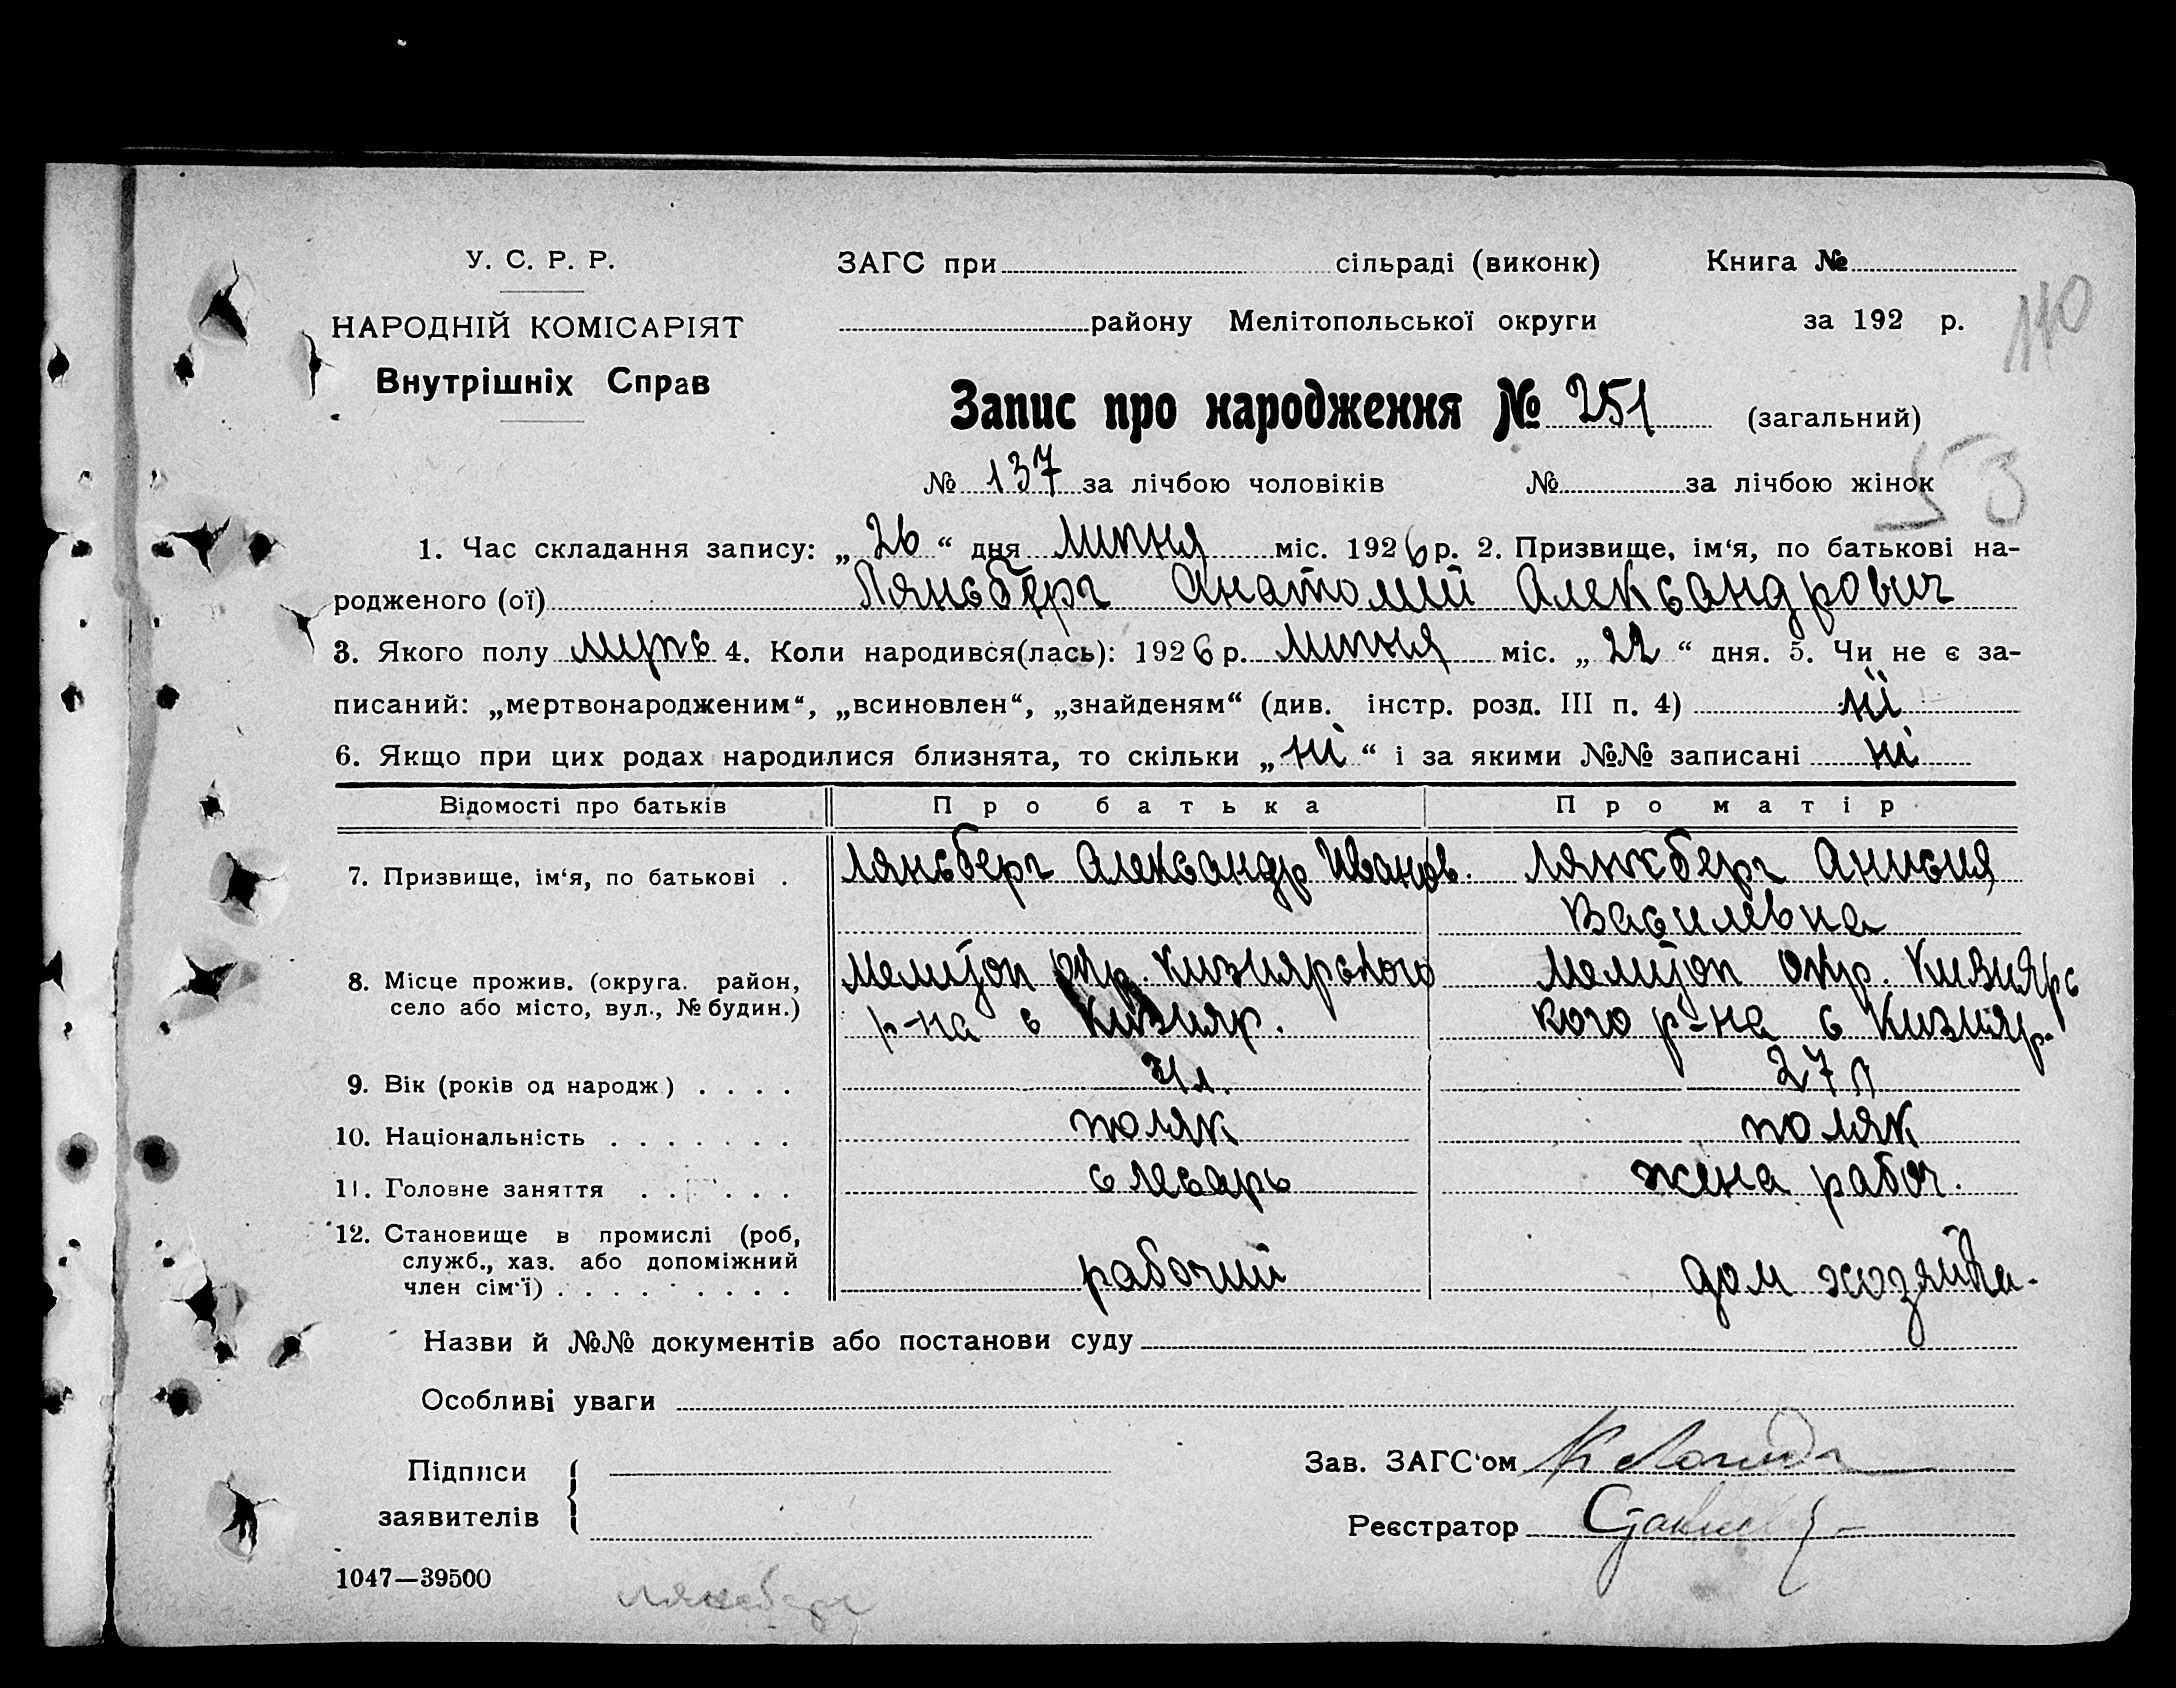 У. С. Р. Р.
НАРОДНІЙ КОМІСАРІЯТ
Внутрішніх Справ
ЗАГС при сільраді (виконк) Книга №
району Мелітопольської округи за 192 р.
110
Запис про народження № 251 (загальний)
№ 137 за лічбою чоловіків № за лічбою жінок
53
1. Час складання запису: „ 26 “ дня липня міс. 1926 р. 2. Призвище, ім‘я, по батькові на-
родженого (ої) Лянсберг Анатолий Александрович
3. Якого полу мужс 4. Коли народився(лась): 1926 р. липня міс. „ 22 “ дня. 5. Чи не є за-
писаний: „мертвонародженим“, „всиновлен“, „знайденям“ (див. інстр. розд. III п. 4) ні
6. Якщо при цих родах народилися близнята, то скільки „ ні “ і за якими №№ записані ні
Відомості про батьків Про батька Про матір
7. Призвище, ім‘я, по батькові . Лянсберг Александр Иванов. Лянсберг Анисия
Василівна
8. Місце прожив. (округа. район, Мелитоп окр. Кизиярского Мелитоп окр. Кизиярс
село або місто, вул., № будин.) р-на с Кизияр. кого р-на с Кизияр.
9. Вік (років од народж) . . . . 31 л. 27 л
10. Національність . . . . . . . поляк поляк
11. Головне заняття . . . . . . слесарь жена рабоч.
12. Становище в промислі (роб,
служб., хаз. або допоміжний
член сім‘ї) . . . . . . . . рабочий дом хозяйка.
Назви й №№ документів або постанови суду
Особливі уваги
Підписи
заявителів
Зав. ЗАГС‘ом
Реєстратор
1047—39500
Лянсберг